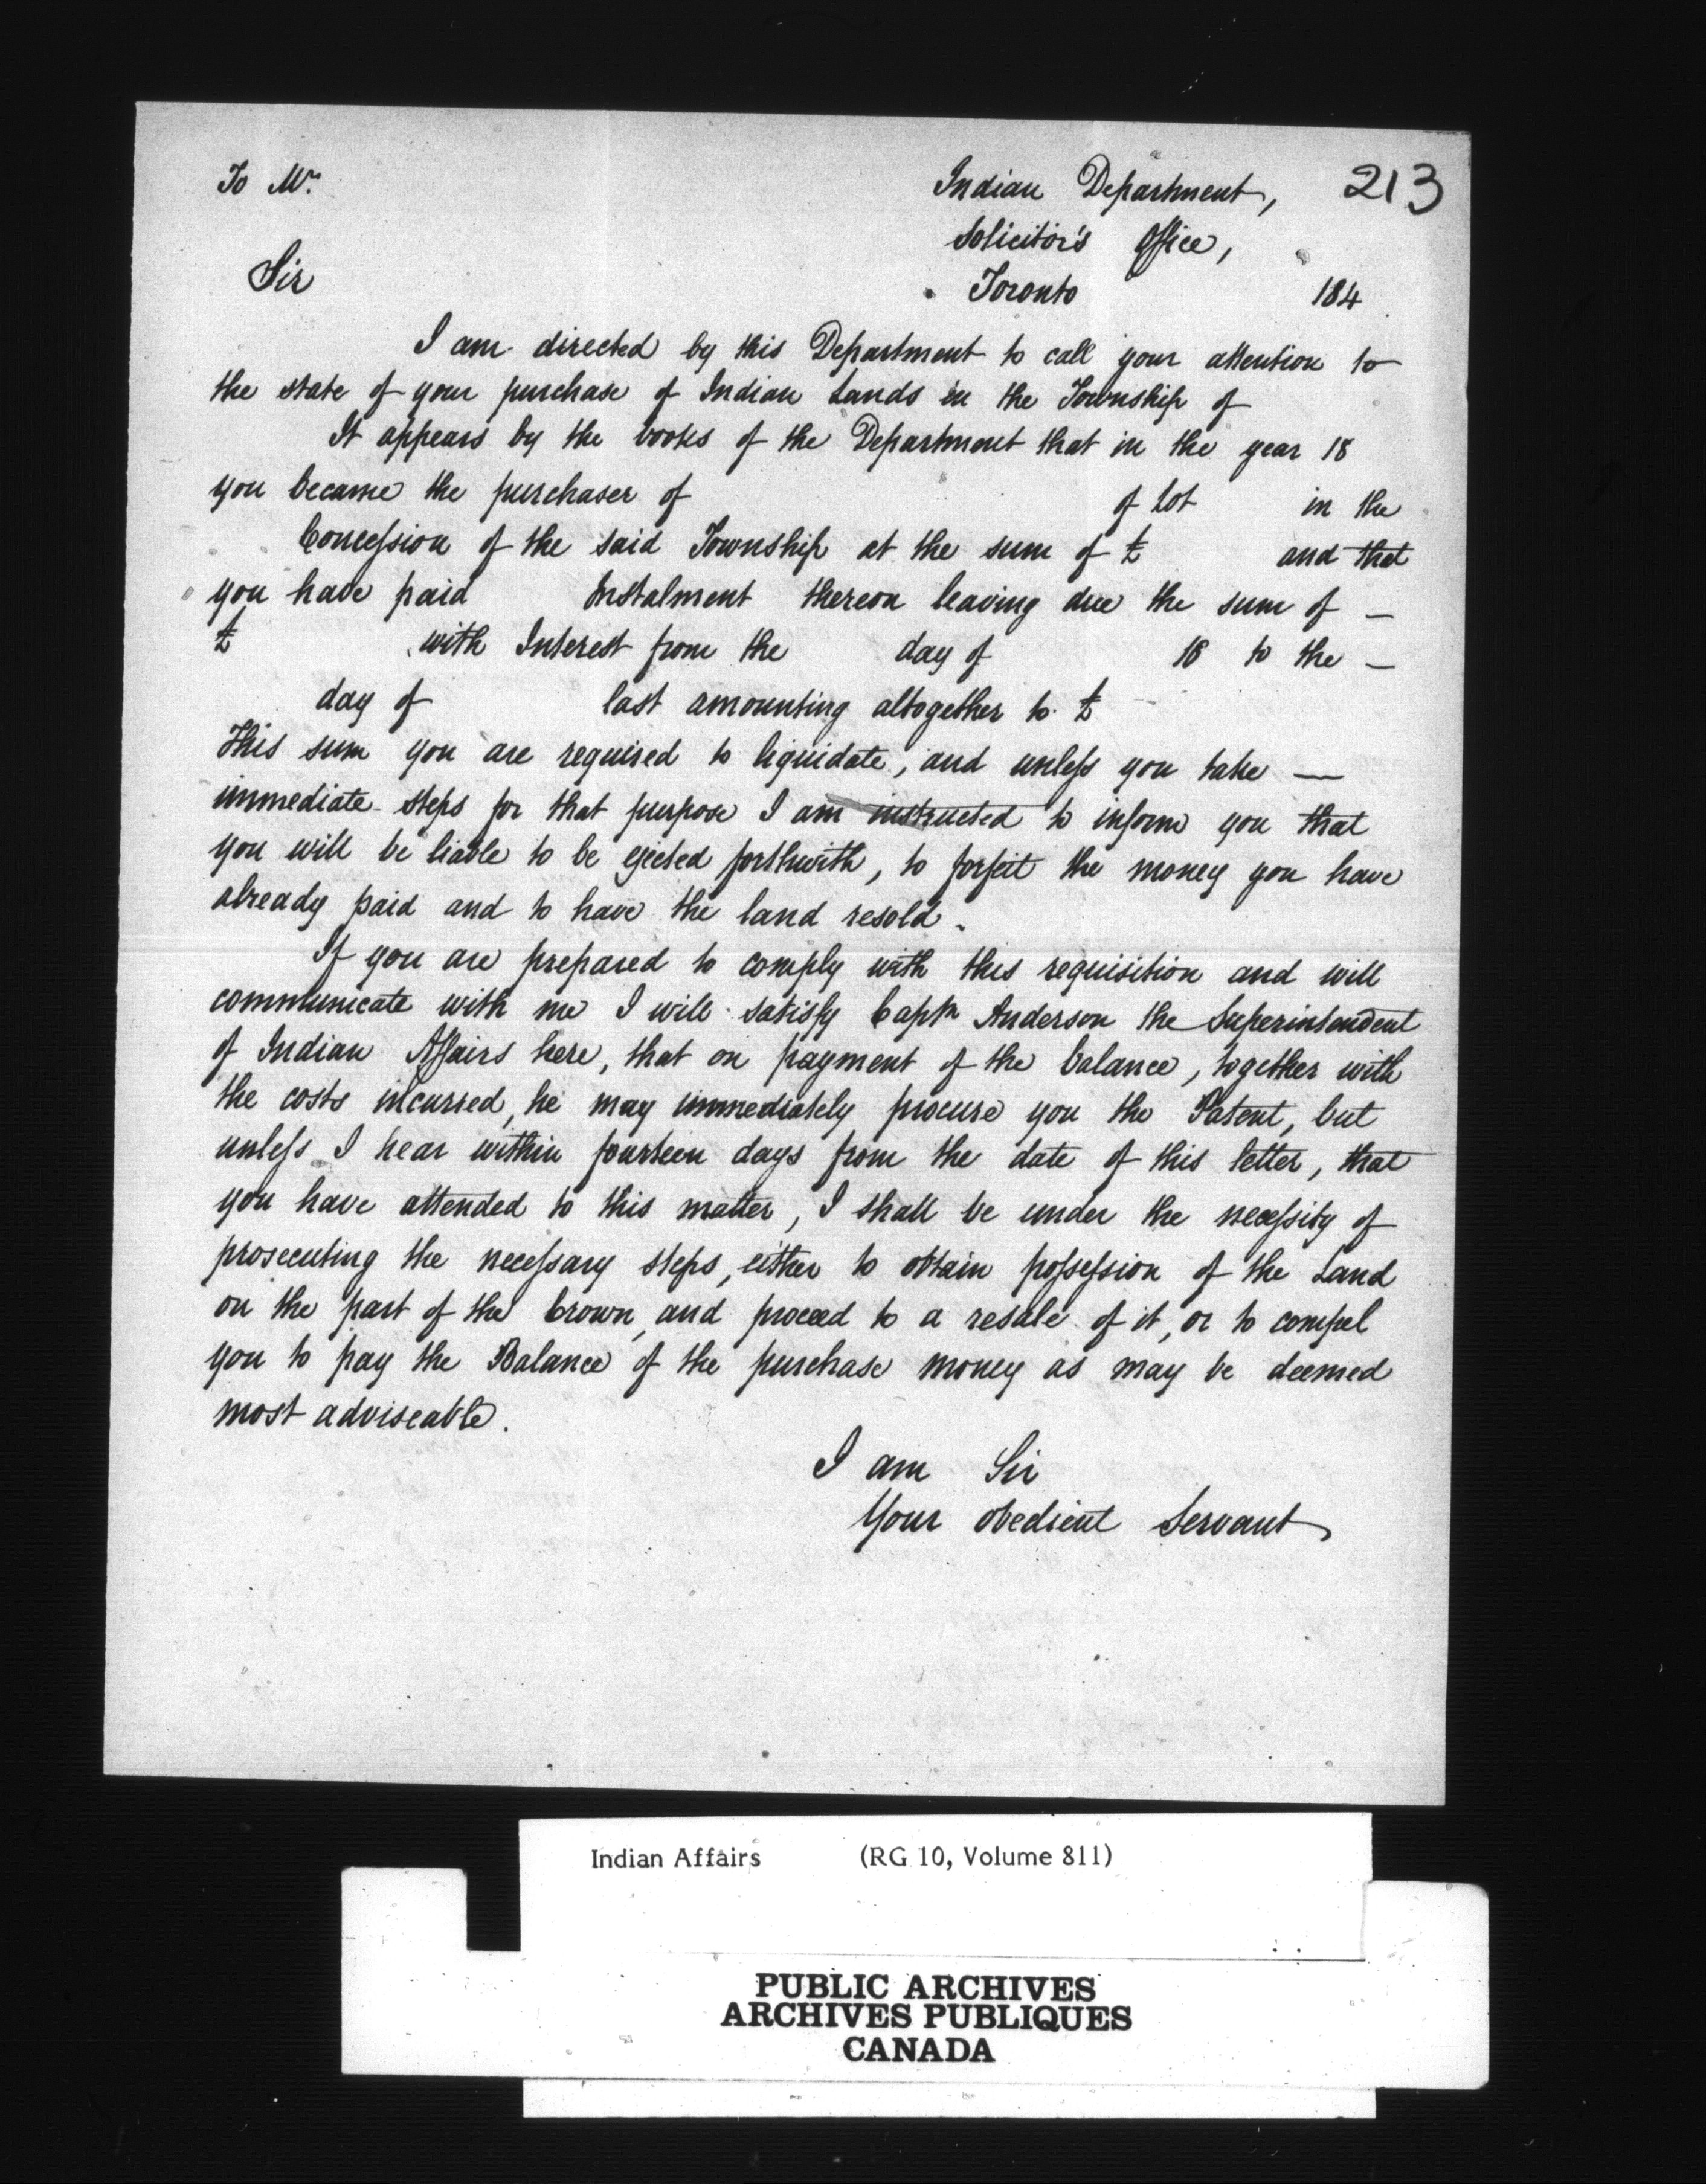 To Mr.
Indian Department, 213
Solicitor's Office,
Sir
Toronto 184
I am directed by this Department to call your attention to
the state of your purchase of Indian Lands in the Township of
It appears by the books of the Department that in the year 18
you became the purchaser of of Lot in the
Concession of the said Township at the sum of £ and that
you have paid Instalment thereon leaving due the sum of —
£ with Interest from the day of 18 to the —
day of last amounting altogether to £
This sum you are required to liquidate, and unless you take —
immediate steps for that purpose I am instructed to inform you that
you will be liable to be ejected forthwith, to forfeit the money you have
already paid and to have the land resold.
If you are prepared to comply with this requisition and will
communicate with me I will satisfy Captn Anderson the Superintendent
of Indian Affairs here, that on payment of the balance, together with
the costs incurred, he may immediately procure you the Patent, but
unless I hear within fourteen days from the date of this letter, that
you have attended to this matter, I shall be under the necessity of
prosecuting the necessary steps, either to obtain possession of the Land
on the part of the Crown, and proceed to a resale of it, or to compel
you to pay the Balance of the purchase money as may be deemed
most adviseable.
I am Sir
Your obedient Servant
Indian Affairs (RG 10, Volume 811)
PUBLIC ARCHIVES
ARCHIVES PUBLIQUES
CANADA